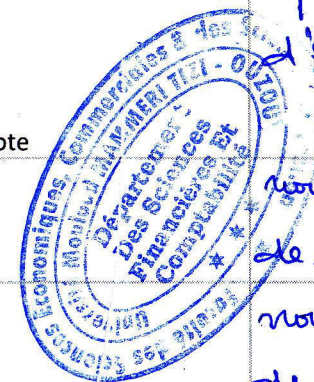 Faculté des Sciences Economiques, Commerciales & des
Université Mouloud MAMMERI TIZI - OUZOU
Département
Des Sciences
Financières Et
Comptabilité
de